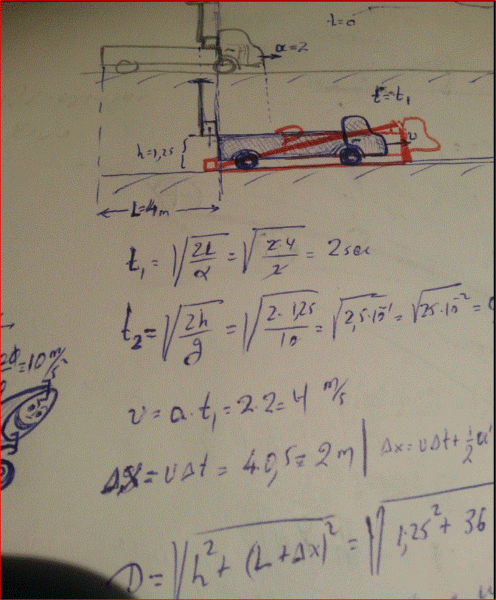 t=0
a=2
t=t₁
v
h=1,25
L=4m
t₁=√(2L/a)=√(2·4/2)=2sec
t₂=√(2h/g)=√(2·1,25/10)=√(2,5·10⁻¹)=√(25·10⁻²)=0
=10 m/s
v=a·t₁=2·2=4 m/s
Δx=vΔt=4·0,5=2m | Δx=vΔt+½a
D=√(h²+(L+Δx)²)=√(1,25²+36